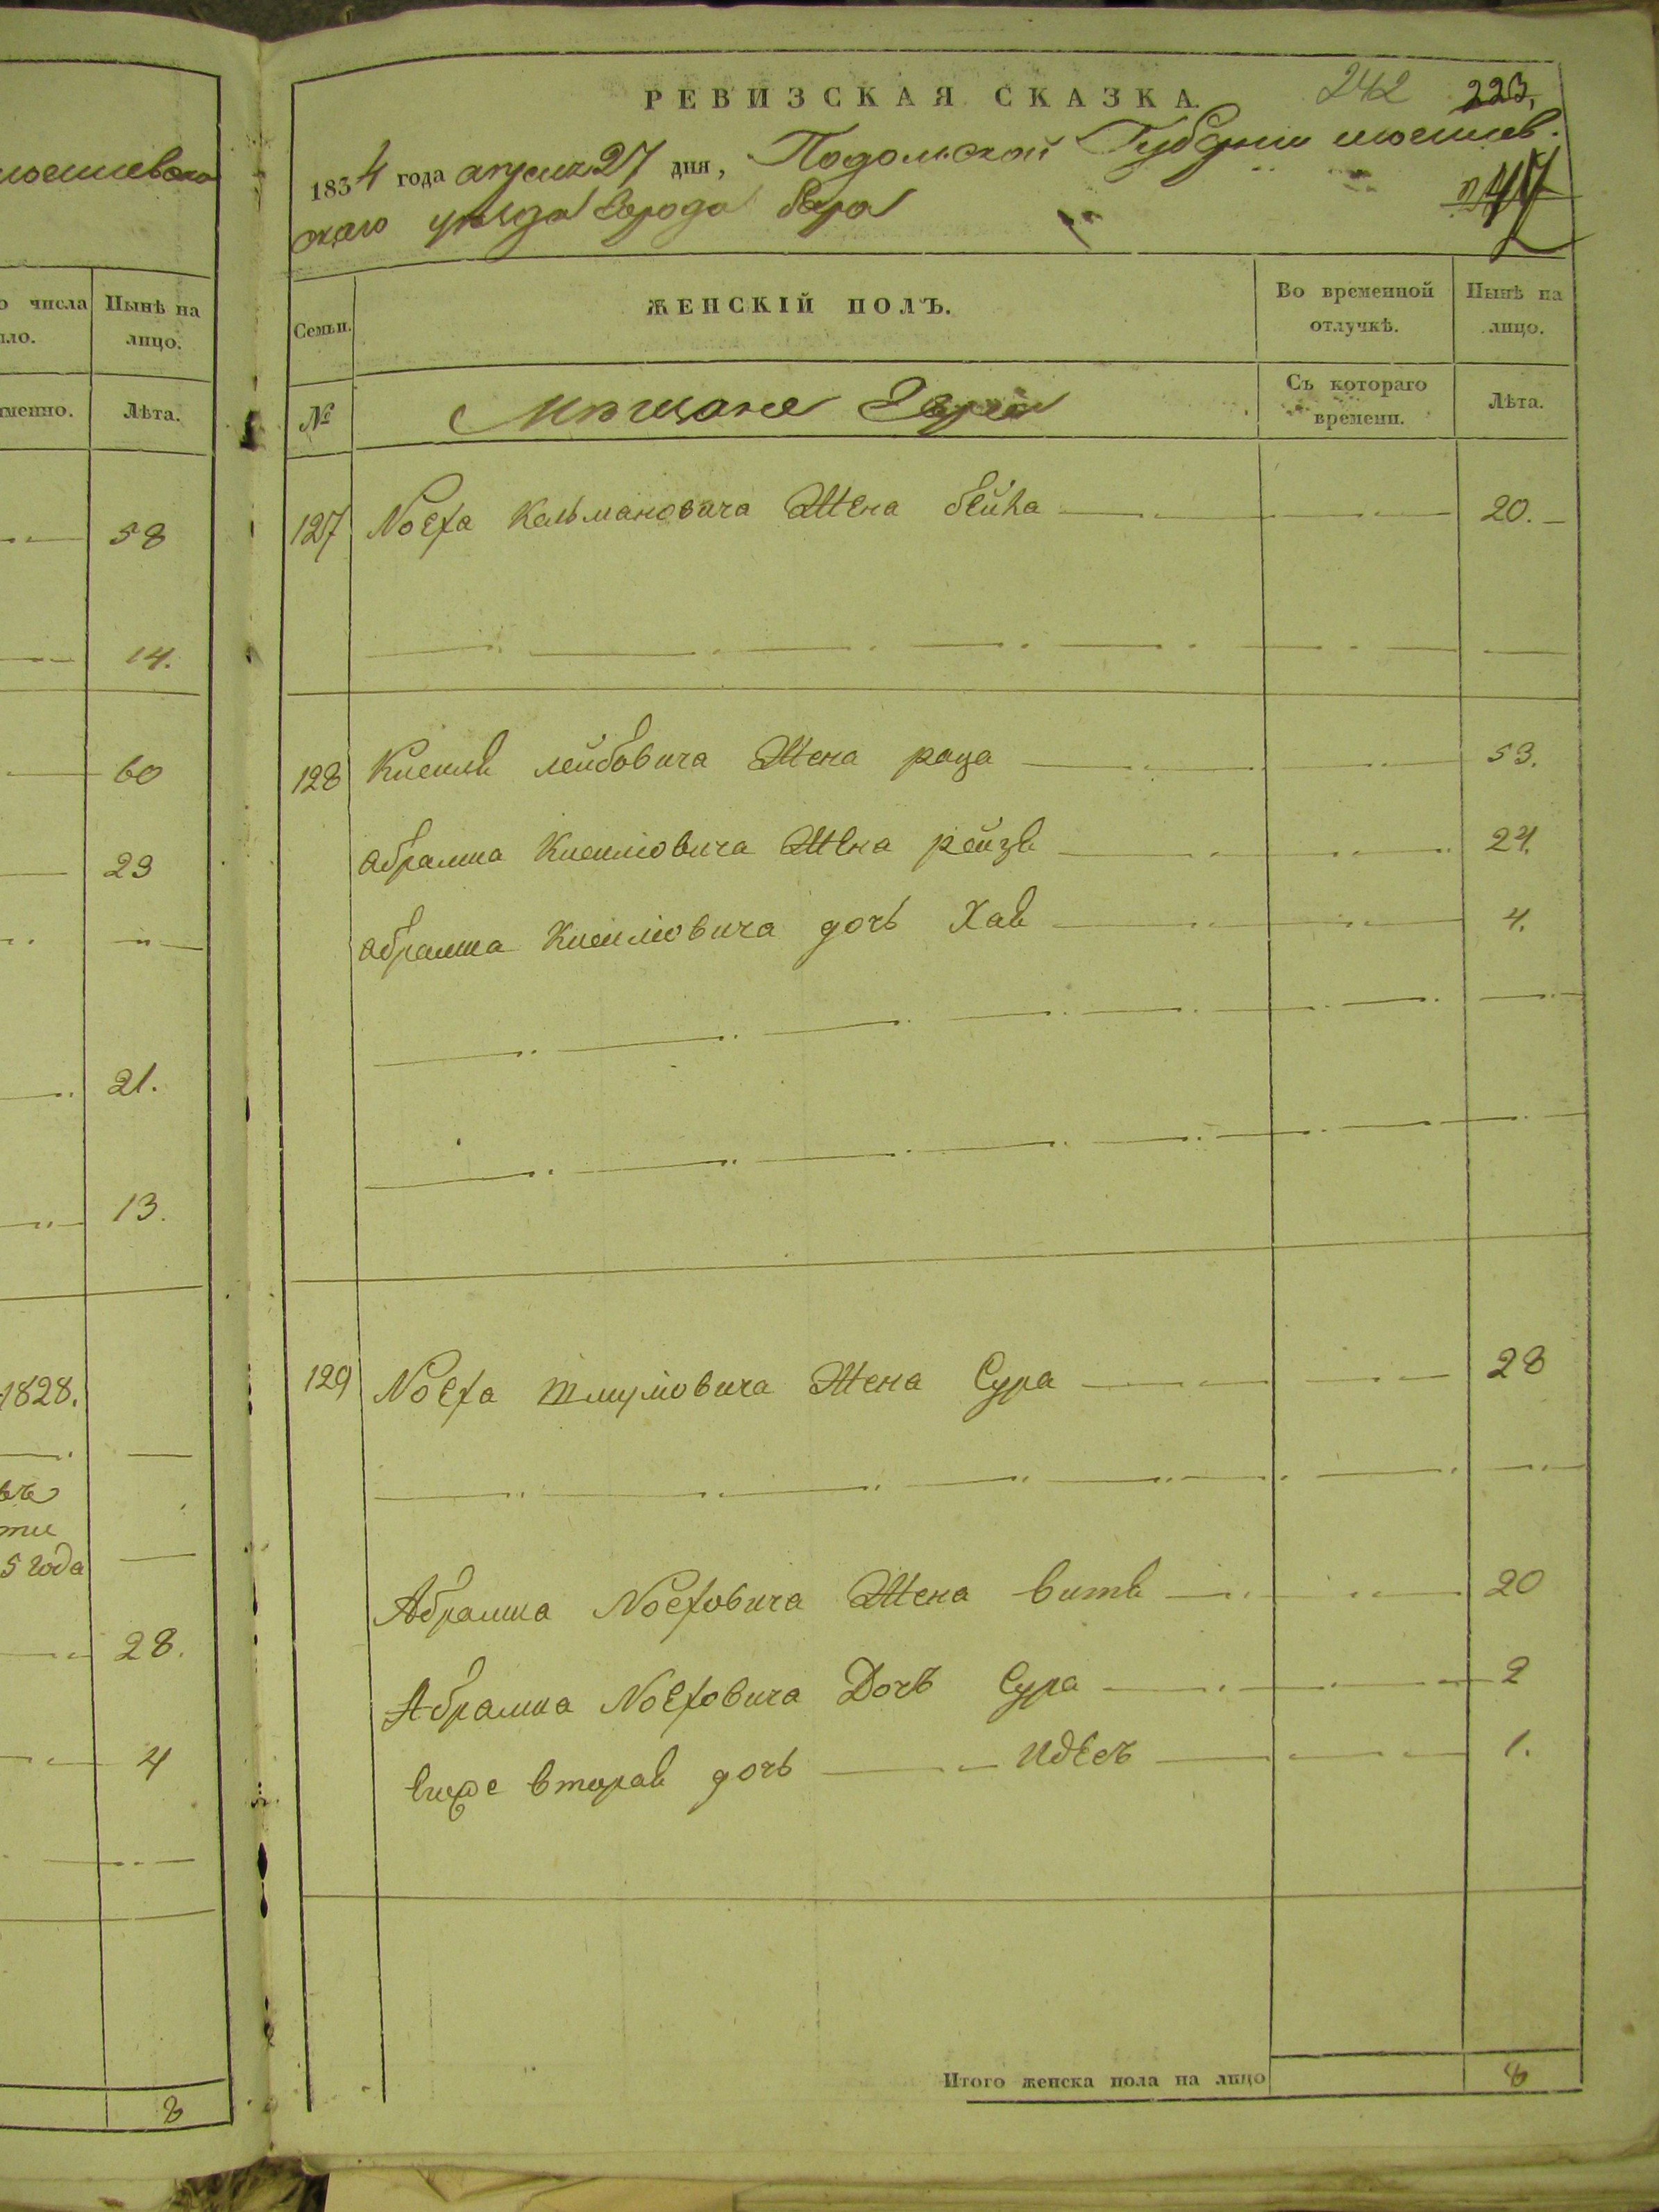 могилевска
о числа
ыло.
Нынѣ на
лицо.
именно.
Лѣта.
58
14.
60
29
21.
13.
1828.
5 года
28.
4
8
РЕВИЗСКАЯ СКАЗКА.
242 223,
1834 года апреля 27 дня, Подольской Губернии могилев-
скаго уезда города бара
Семьи.
ЖЕНСКІЙ ПОЛЪ.
Во временной
отлучкѣ.
Нынѣ на
лицо.
№
Мѣщане Евреи
Съ котораго
времени.
Лѣта.
127 Иосѣа Кальмановича Жена бейла 20.
128 Киселя лейбовича Жена раца 53.
абрамка Кисилiовича Жена рейзя 24.
абрамка Кисилiовича дочь Хая 4.
129 Иосѣа Жена Сура 28
Абрамка Иосѣовича Жена витя 20
Абрамка Иосѣовича Дочь Сура 2
вторая дочь Идесъ 1.
Итого женска пола на лицо 8